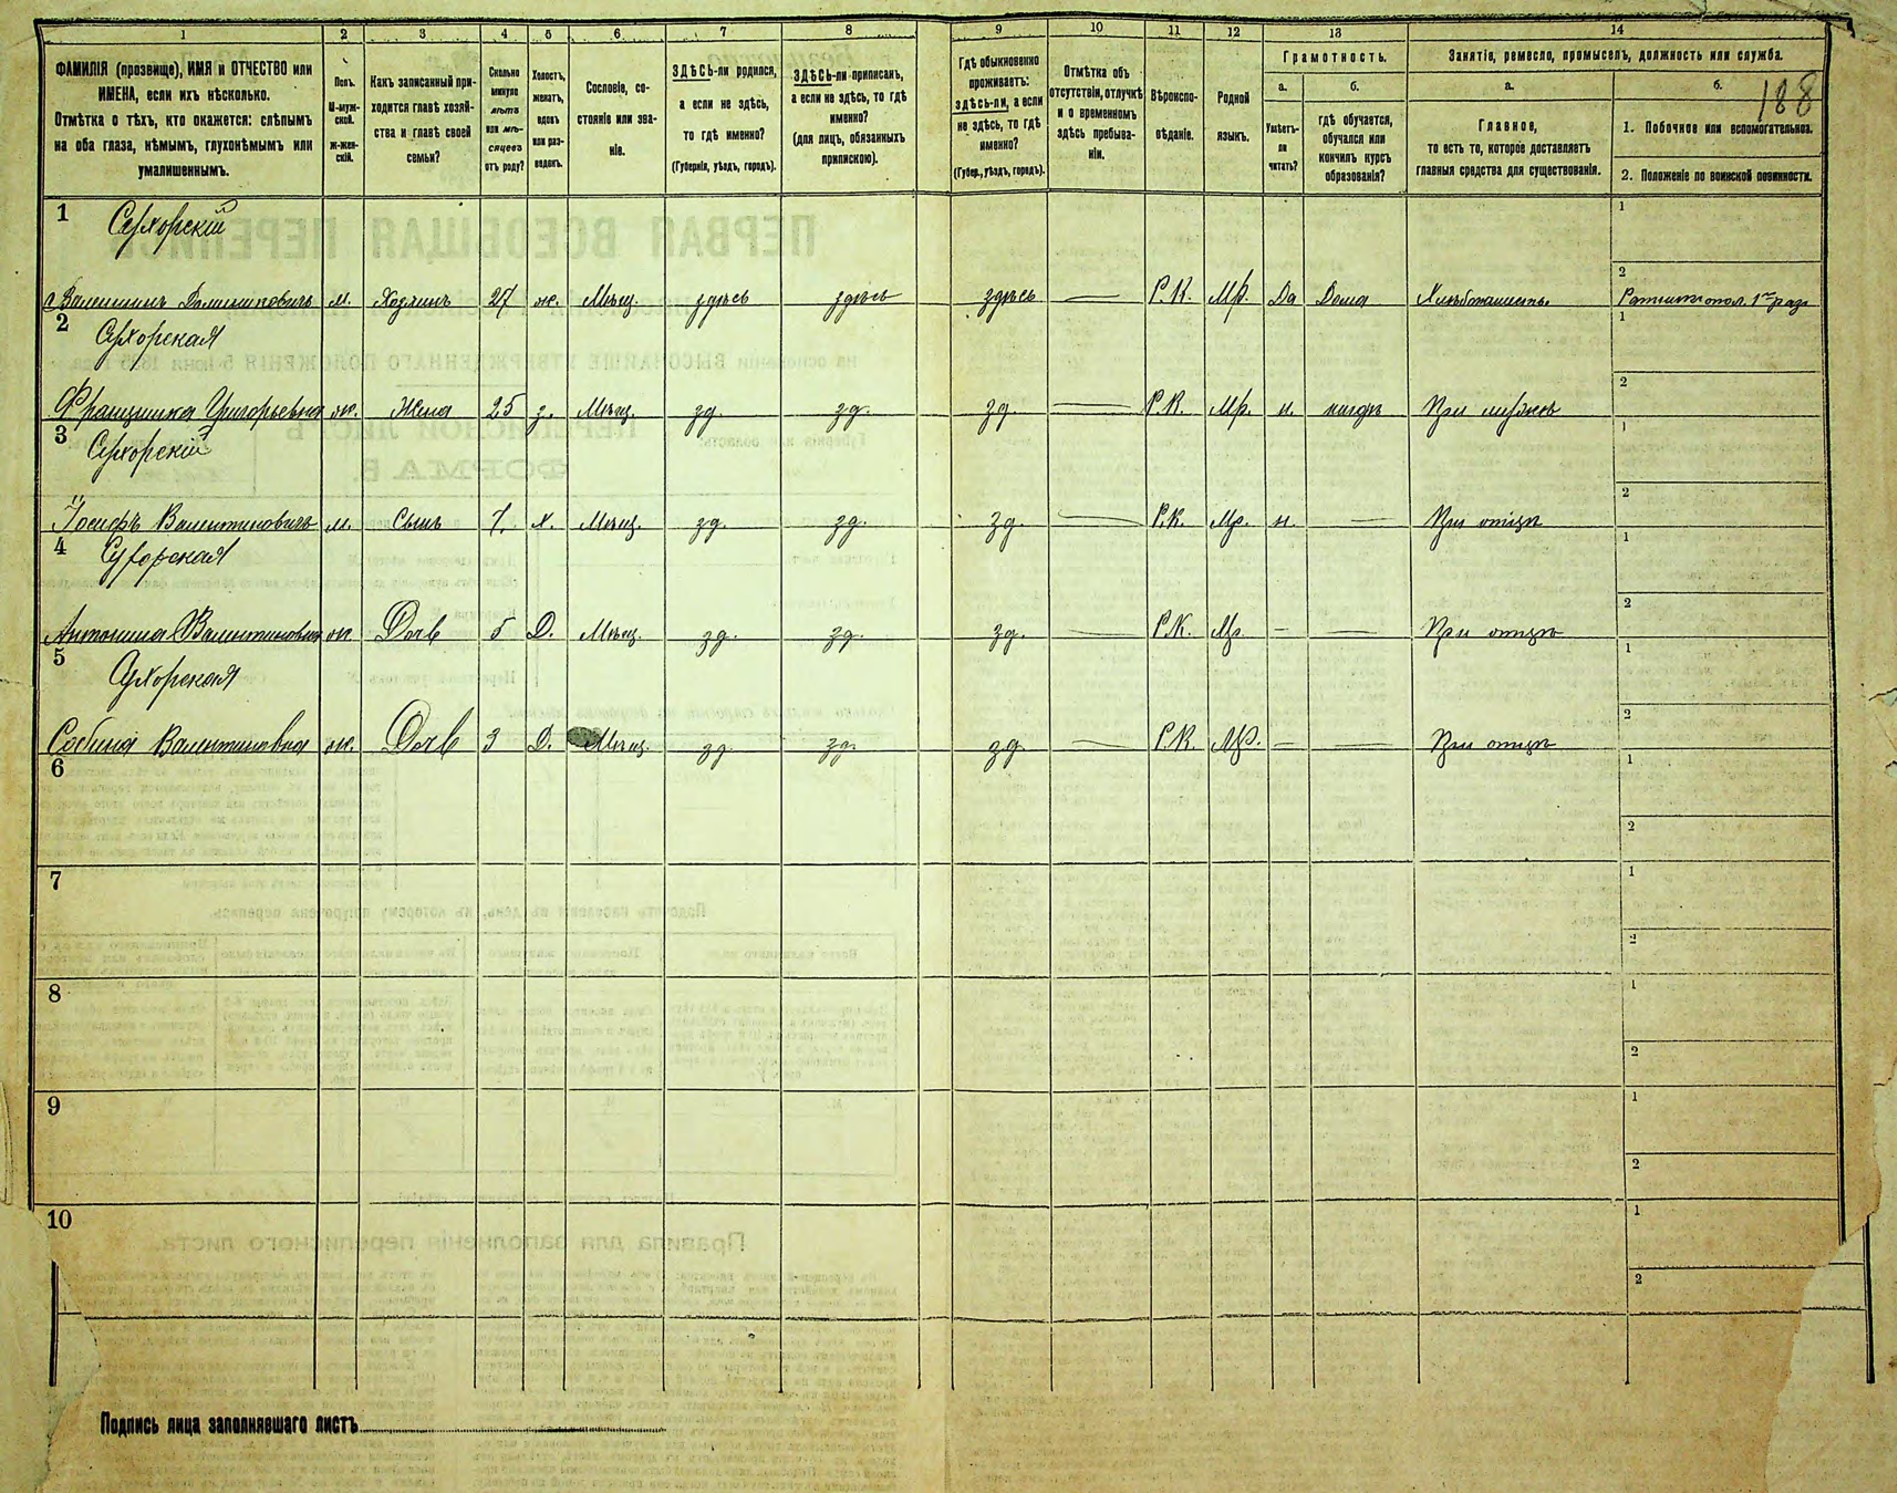 1 2 3 4 5 6 7 8 9 10 11 12 13 14
ФАМИЛІЯ (прозвище), ИМЯ и ОТЧЕСТВО или
ИМЕНА, если ихъ нѣсколько.
Отмѣтка о тѣхъ, кто окажется: слѣпымъ
на оба глаза, нѣмымъ, глухонѣмымъ или
умалишеннымъ.
Полъ.
М-муж-
ской.
ж-жен-
скій.
Какъ записанный при-
ходится главѣ хозяй-
ства и главѣ своей
семьи?
Сколько
минуло
лѣтъ
или мѣ-
сяцевъ
отъ роду?
Холостъ,
женатъ,
вдовъ
или раз-
веденъ.
Сословіе, со-
стояніе или зва-
ніе.
ЗДѢСЬ-ли родился,
а если не здѣсь,
то гдѣ именно?
(Губернія, уѣздъ, городъ).
ЗДѢСЬ-ли приписанъ,
а если не здѣсь, то гдѣ
именно?
(для лицъ, обязанныхъ
припискою).
Гдѣ обыкновенно
проживаетъ:
здѣсь-ли, а если
не здѣсь, то гдѣ
именно?
(Губер., уѣздъ, городъ).
Отмѣтка объ
отсутствіи, отлучкѣ
и о временномъ
здѣсь пребыва-
ніи.
Вѣроиспо-
вѣданіе.
Родной
языкъ.
Грамотность.
а.
Умѣетъ-
ли
читать?
б.
гдѣ обучается,
обучался или
кончилъ курсъ
образованія?
Занятіе, ремесло, промыселъ, должность или служба.
а.
Главное,
то есть то, которое доставляетъ
главныя средства для существованія.
б.
188
1. Побочное или вспомогательное.
2. Положеніе по воинской повинности.
1 Сухорскій 1
Валентинъ Доминиковичъ м. Хозяинъ 27 ж. Мѣщ. здѣсь здѣсь здѣсь — Р.К. Мр. Да Дома Хлѣбопашецъ 2 Ратникъ опол. 1го разр
2 Сухорская 1
Францишка Григорьевна ж. Жена 25 з. Мѣщ. зд. зд. зд. — Р.К. Мр. н. нигдѣ При мужѣ 2
3 Сухорскій 1
Іосифъ Валентиновичъ м. Сынъ 7. х. Мѣщ. зд. зд. зд. — Р.К. Мр. н. — При отцѣ 2
4 Сухорская 1
Антонина Валентиновна ж. Дочь 5 Д. Мѣщ. зд. зд. зд. — Р.К. Мр. — — При отцѣ 2
5 Сухорская 1
Собина Валентиновна ж. Дочь 3 Д. Мѣщ. зд. зд. зд. — Р.К. Мр. — — При отцѣ 2
6 1
2
7 1
2
8 1
2
9 1
2
10 1
2
Подпись лица заполнявшаго листъ